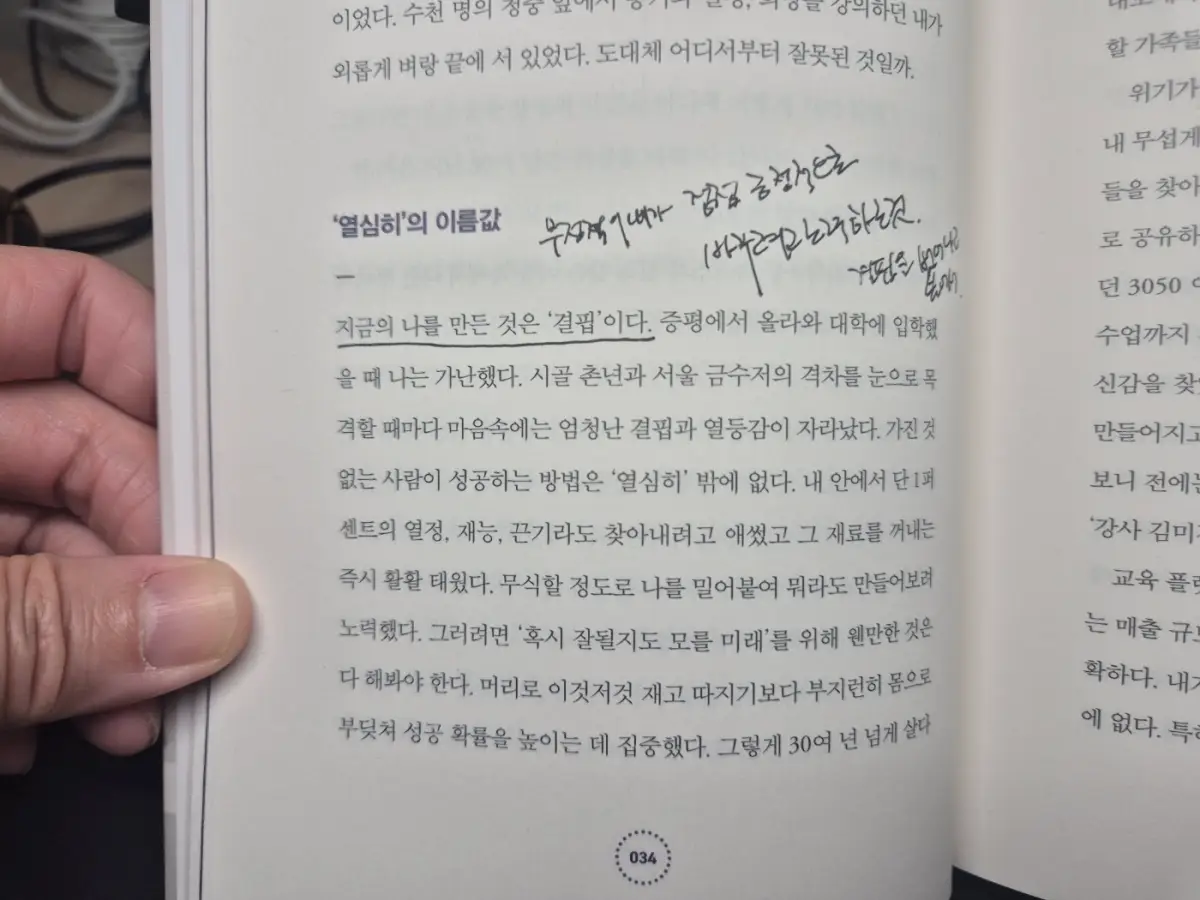 이었다. 수천 명의 청중 앞에서 용기와 열정, 희망을 강의하던 내가
외롭게 벼랑 끝에 서 있었다. 도대체 어디서부터 잘못된 것일까.
'열심히'의 이름값
내가 점점 긍정적으로
바꾸려고 노력하는것.
결핍을
지금의 나를 만든 것은 '결핍'이다. 증평에서 올라와 대학에 입학했
을 때 나는 가난했다. 시골 촌년과 서울 금수저의 격차를 눈으로 목
격할 때마다 마음속에는 엄청난 결핍과 열등감이 자라났다. 가진 것
없는 사람이 성공하는 방법은 '열심히' 밖에 없다. 내 안에서 단 1퍼
센트의 열정, 재능, 끈기라도 찾아내려고 애썼고 그 재료를 꺼내는
즉시 활활 태웠다. 무식할 정도로 나를 밀어붙여 뭐라도 만들어보려
노력했다. 그러려면 '혹시 잘될지도 모를 미래'를 위해 웬만한 것은
다 해봐야 한다. 머리로 이것저것 재고 따지기보다 부지런히 몸으로
부딪쳐 성공 확률을 높이는 데 집중했다. 그렇게 30여 년 넘게 살다
034
할 가족들
위기가
내 무섭게
들을 찾아
로 공유하
던 3050
수업까지
신감을 찾
만들어지고
보니 전에는
'강사 김미
교육 플랫
는 매출 규모
확하다. 내가
에 없다. 특히